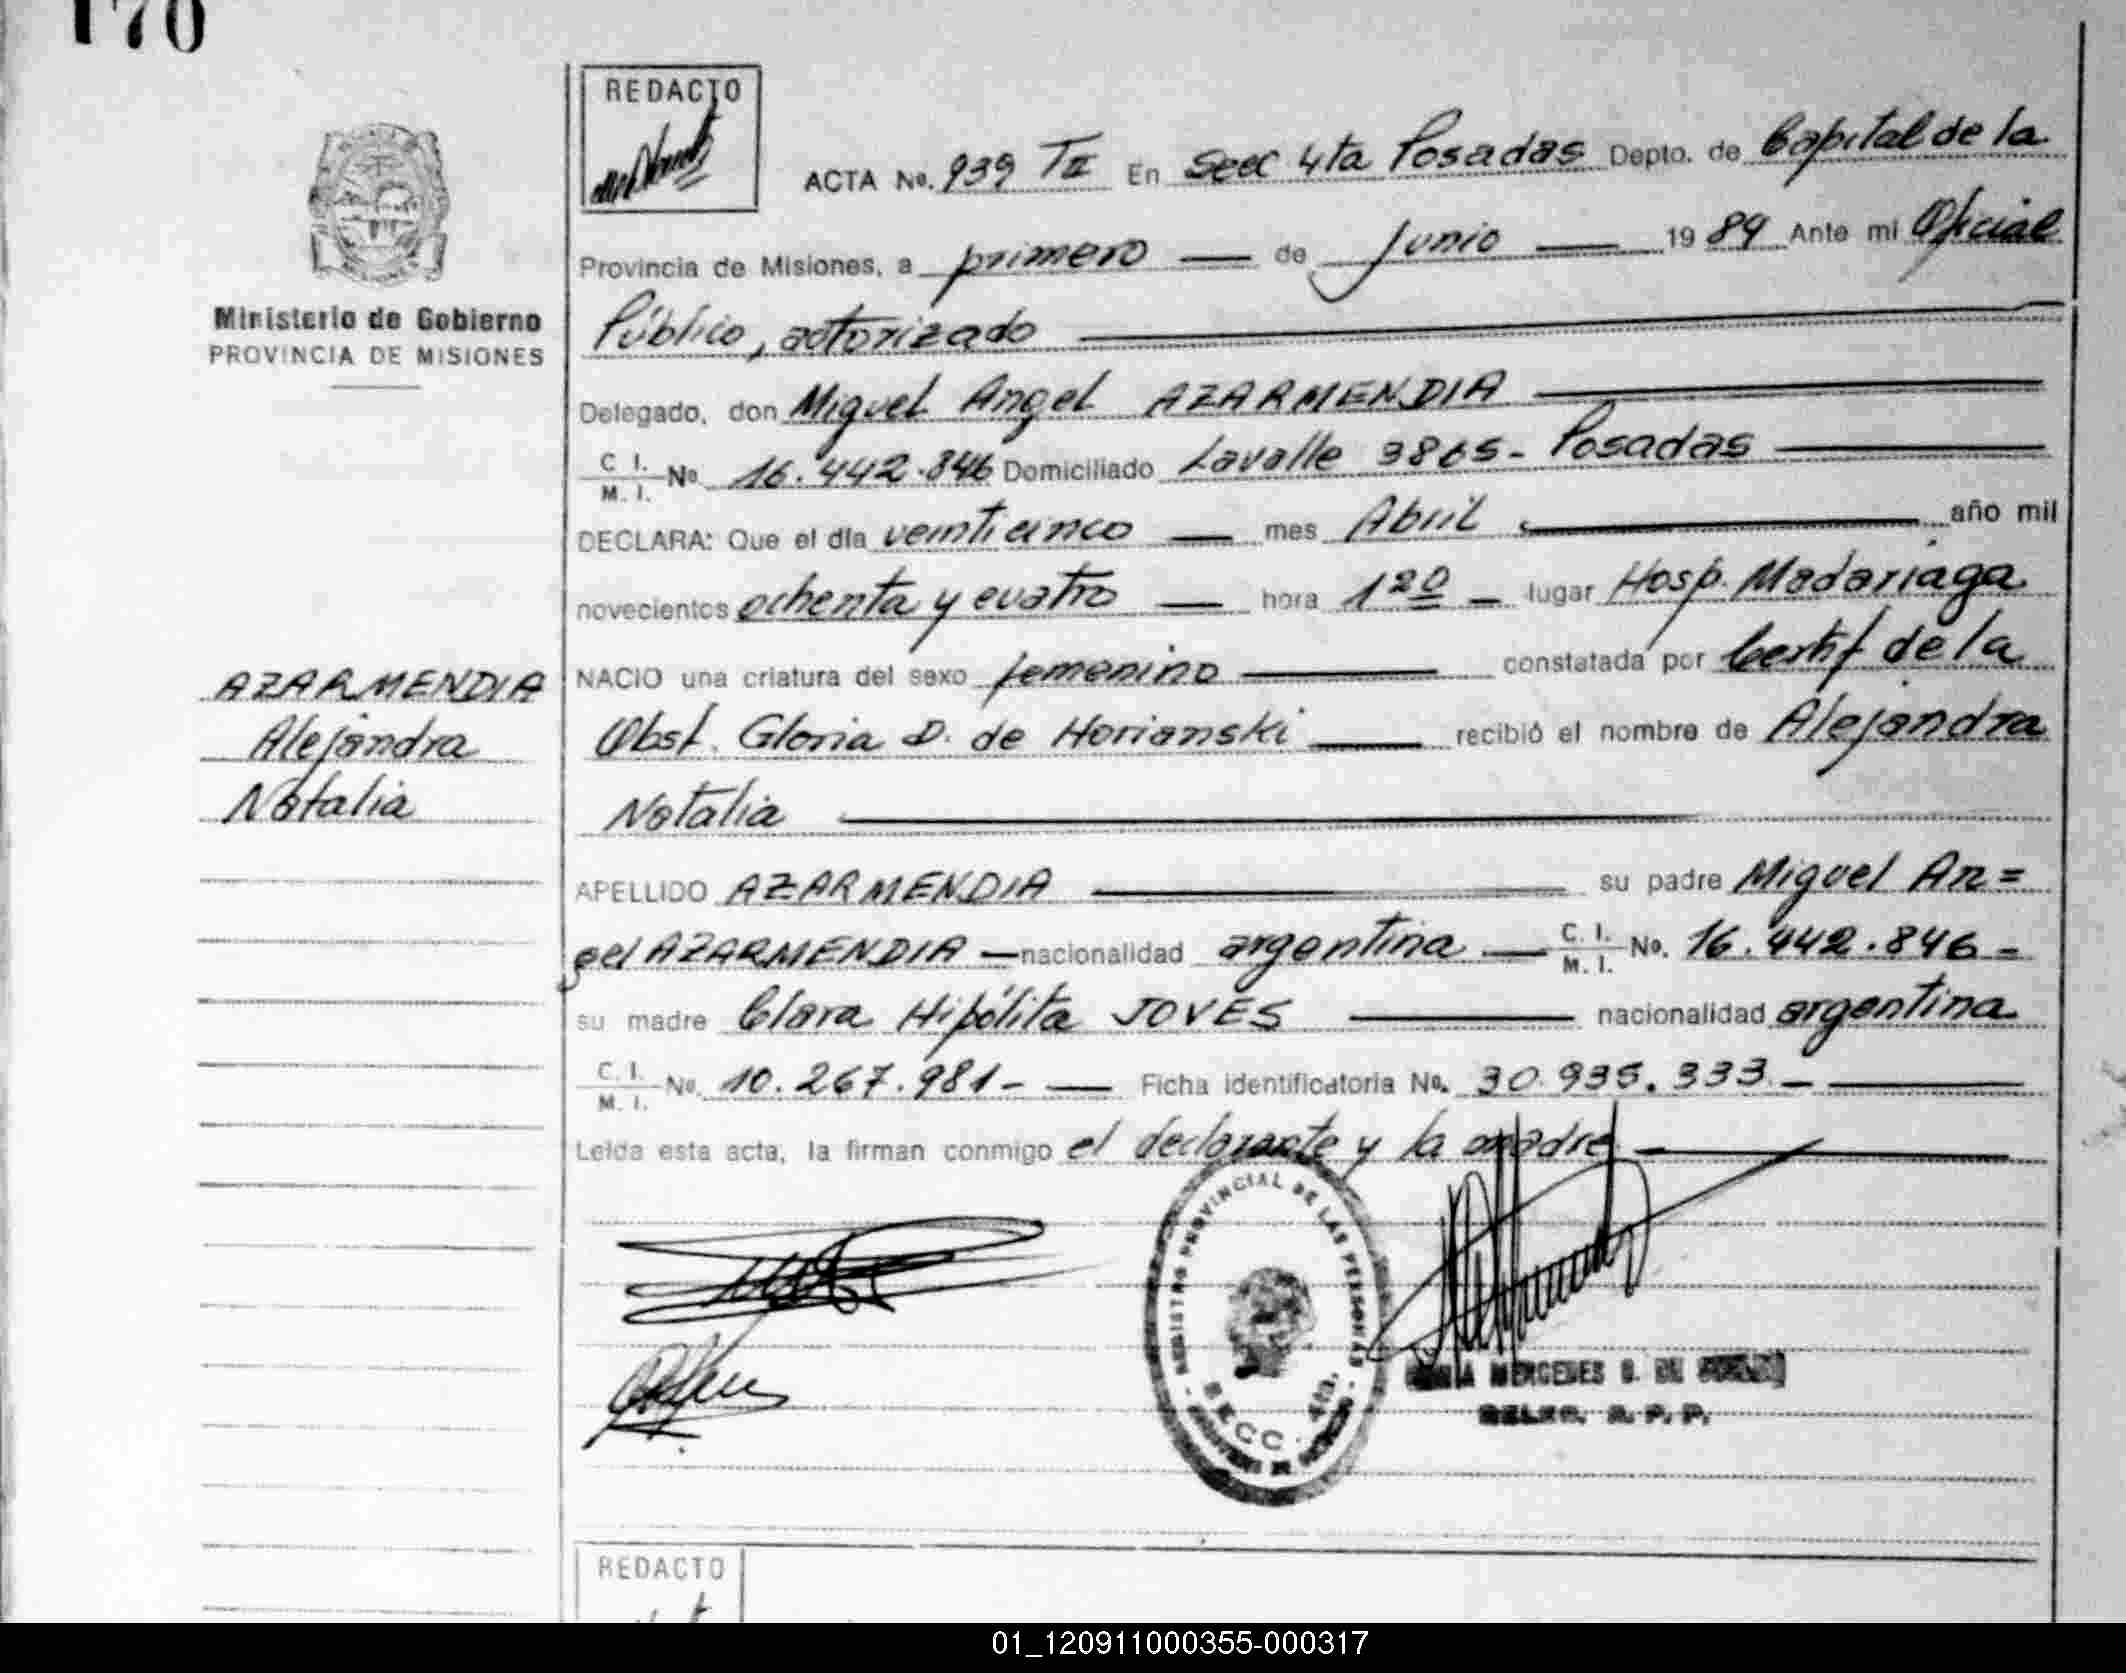 170
REDACTO
ACTA No. 939 TII En Secc 4ta Posadas Depto. de Capital de la
Provincia de Misiones, a primero — de Junio — 19 84 Ante mi Oficial
Ministerio de Gobierno
PROVINCIA DE MISIONES
Público, autorizado
Delegado, don Miguel Angel AZARMENDIA
C. I. M. I. No 16.442.846 Domiciliado Lavalle 3865 - Posadas
DECLARA: Que el día veinticinco — mes Abril año mil
novecientos ochenta y cuatro — hora 1 20 — lugar Hosp. Madariaga
AZARMENDIA
Alejandra
Natalia
NACIO una criatura del sexo femenino — constatada por Certif de la
Obst. Gloria D. de Horianski — recibió el nombre de Alejandra
Natalia
APELLIDO AZARMENDIA — su padre Miguel An=
gel AZARMENDIA — nacionalidad argentina — C. I. M. I. No. 16.442.846 -
su madre Clara Hipólita JOVES — nacionalidad argentina
C. I. M. I. No. 10.267.981 - — Ficha identificatoria No. 30.935.333 -
Leída esta acta, la firman conmigo el declarante y la madre
REGISTRO PROVINCIAL DE LAS PERSONAS
SECC. 4ta.
MERCEDES
R. P. P.
REDACTO
01_120911000355-000317